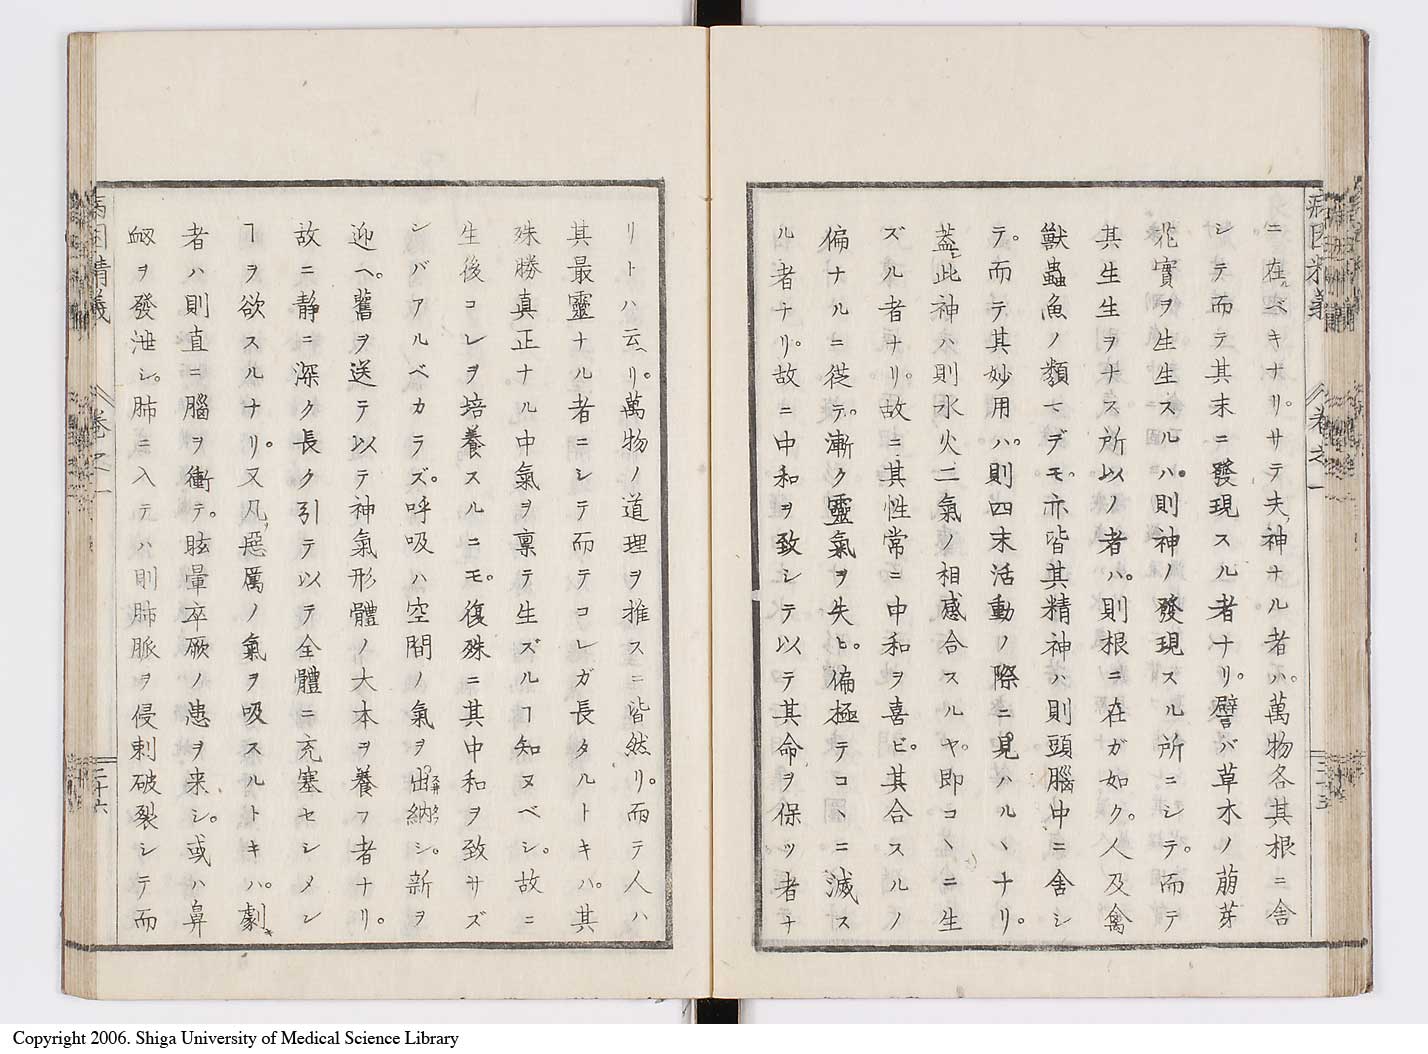 ニ在ルベキナリ。サテ夫神ナル者ハ。萬物各其根ニ舎
シテ而テ其末ニ發現スル者ナリ。譬バ草木ノ萠芽
花實ヲ生生スルハ。則神ノ發現スル所ニシテ。而テ
其生生ヲナス所以ノ者ハ。則根ニ在ガ如ク。人及禽
獸蟲魚ノ類マデモ。亦皆其精神ハ則頭腦中ニ舎シ
テ。而テ其妙用ハ。則四末活動ノ際ニ見ハルヽナリ。
蓋此神ハ則水火二氣ノ相感合スルヤ。即コヽニ生
ズル者ナリ。故ニ其性常ニ中和ヲ喜ビ。其合スルノ
偏ナルニ從テ。漸ク靈氣ヲ失ヒ。偏極テコヽニ滅ス
ル者ナリ。故ニ中和ヲ致シテ以テ其命ヲ保ツ者ナ
リトハ云ヘリ。萬物ノ道理ヲ推スニ皆然リ。而テ人ハ
其最靈ナル者ニシテ而テコレガ長タルトキハ。其
殊勝真正ナル中氣ヲ禀テ生ズルヿ知ヌベシ。故ニ
生後コレヲ培養スルニモ。復殊ニ其中和ヲ致サズ
シバアルベカラズ。呼吸ハ空間ノ氣ヲ出納シ。新ヲ
迎ヘ。舊ヲ送テ以テ神氣形體ノ大本ヲ養フ者ナリ。
故ニ静ニ深ク長ク引テ以テ全體ニ充塞セシメン
ヿヲ欲スルナリ。又凡惡厲ノ氣ヲ吸スルトキハ。劇
者ハ則直ニ腦ヲ衝テ。眩暈卒厥ノ患ヲ来シ。或ハ鼻
衂ヲ發泄シ。肺ニ入テハ則肺脈ヲ侵刺破裂シテ而
病因精義
卷之一
二十六
Copyright 2006. Shiga University of Medical Science Library